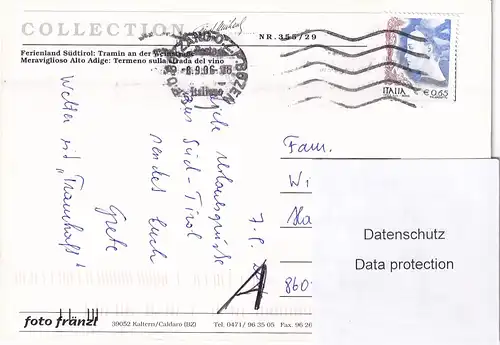 COLLECTION
NR. 355/29
Ferienland Südtirol: Tramin an der Weinstraße
Meraviglioso Alto Adige: Termeno sulla strada del vino
BOLZANO C.P.O. BOZEN
8.9.06
ITALIA
€ 0,65
7.9.
Urlaubsgrüße
aus Süd-Tirol
sendet Euch
Grete
Wetter ist „Traumhaft"!
Fam.
Wi
Ha
860
A
Datenschutz
Data protection
foto fränzl
39052 Kaltern/Caldaro (BZ)
Tel. 0471/ 96 35 05
Fax. 96 26